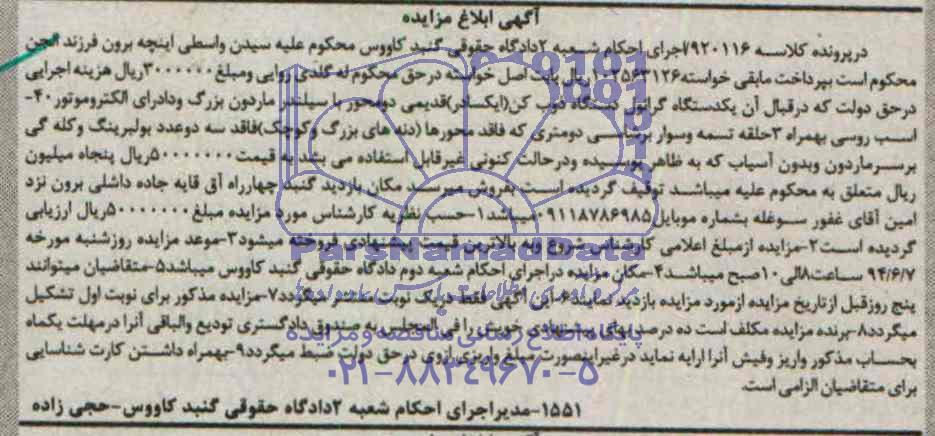 آگهی ابلاغ مزایده
درپرونده کلاسه ۷۹۲۰۱۱۶اجرای احکام شعبه ۲دادگاه حقوقی گنبد کاووس محکوم علیه سیدن واسطی اینچه برون فرزند آنجن
محکوم است بپرداخت مابقی خواسته ریال بابت اصل خواسته درحق محکوم له گلدی روایی ومبلغ۳۰۰۰۰۰۰ریال هزینه اجرایی
درحق دولت که درقبال آن یکدستگاه گرانول دستگاه ذوب کن(ایکسادر)قدیمی دومحور با سیلندر ماردون بزرگ ودادرای الکتروموتور۴۰-
اسب روسی بهمراه ۳حلقه تسمه وسوار برشاسی دومتری که فاقد محورها (دنه های بزرگ وکوچک)فاقد سه دوعدد بولبرینگ وکله گی
برسرماردون وبدون آسیاب که به ظاهر پوسیده ودرحالت کنونی غیرقابل استفاده می بشد به قیمت۵۰۰۰۰۰۰۰ریال پنجاه میلیون
ریال متعلق به محکوم علیه میباشد توقیف گردیده است بفروش میرسد مکان بازدید گنبد چهارراه آق قایه جاده داشلی برون نزد
امین آقای غفور سوغله بشماره موبایل۰۹۱۱۸۷۸۶۹۸۵میباشد۱-حسب نظریه کارشناس مورد مزایده مبلغ۵۰۰۰۰۰۰۰ریال ارزیابی
گردیده است۲-مزایده ازمبلغ اعلامی کارشناس شروع وبه بالاترین قیمت پیشنهادی فروخته میشود۳-موعد مزایده روزشنبه مورخه
۹۴/۶/۷ ساعت۸الی۱۰صبح میباشد۴-مکان مزایده دراجرای احکام شعبه دوم دادگاه حقوقی گنبد کاووس میباشد۵-متقاضیان میتوانند
پنج روزقبل ازتاریخ مزایده ازمورد مزایده بازدید نمایند۶-این آگهی فقط دریک نوبت منتشر میگردد۷-مزایده مذکور برای نوبت اول تشکیل
میگردد۸-برنده مزایده مکلف است ده درصد بهای پیشنهادی خویش را فی المجلس به صندوق دادگستری تودیع والباقی آنرا درمهلت یکماه
بحساب مذکور واریز وفیش آنرا ارایه نماید درغیراینصورت مبلغ واریزی ازوی درحق دولت ضبط میگردد۹-بهمراه داشتن کارت شناسایی
برای متقاضیان الزامی است.
۱۵۵۱-مدیراجرای احکام شعبه ۲دادگاه حقوقی گنبد کاووس-حجی زاده
ParsNamadData
پایگاه اطلاع رسانی مناقصه ومزایده
۰۲۱-۸۸۳۴۹۶۷۰-۵